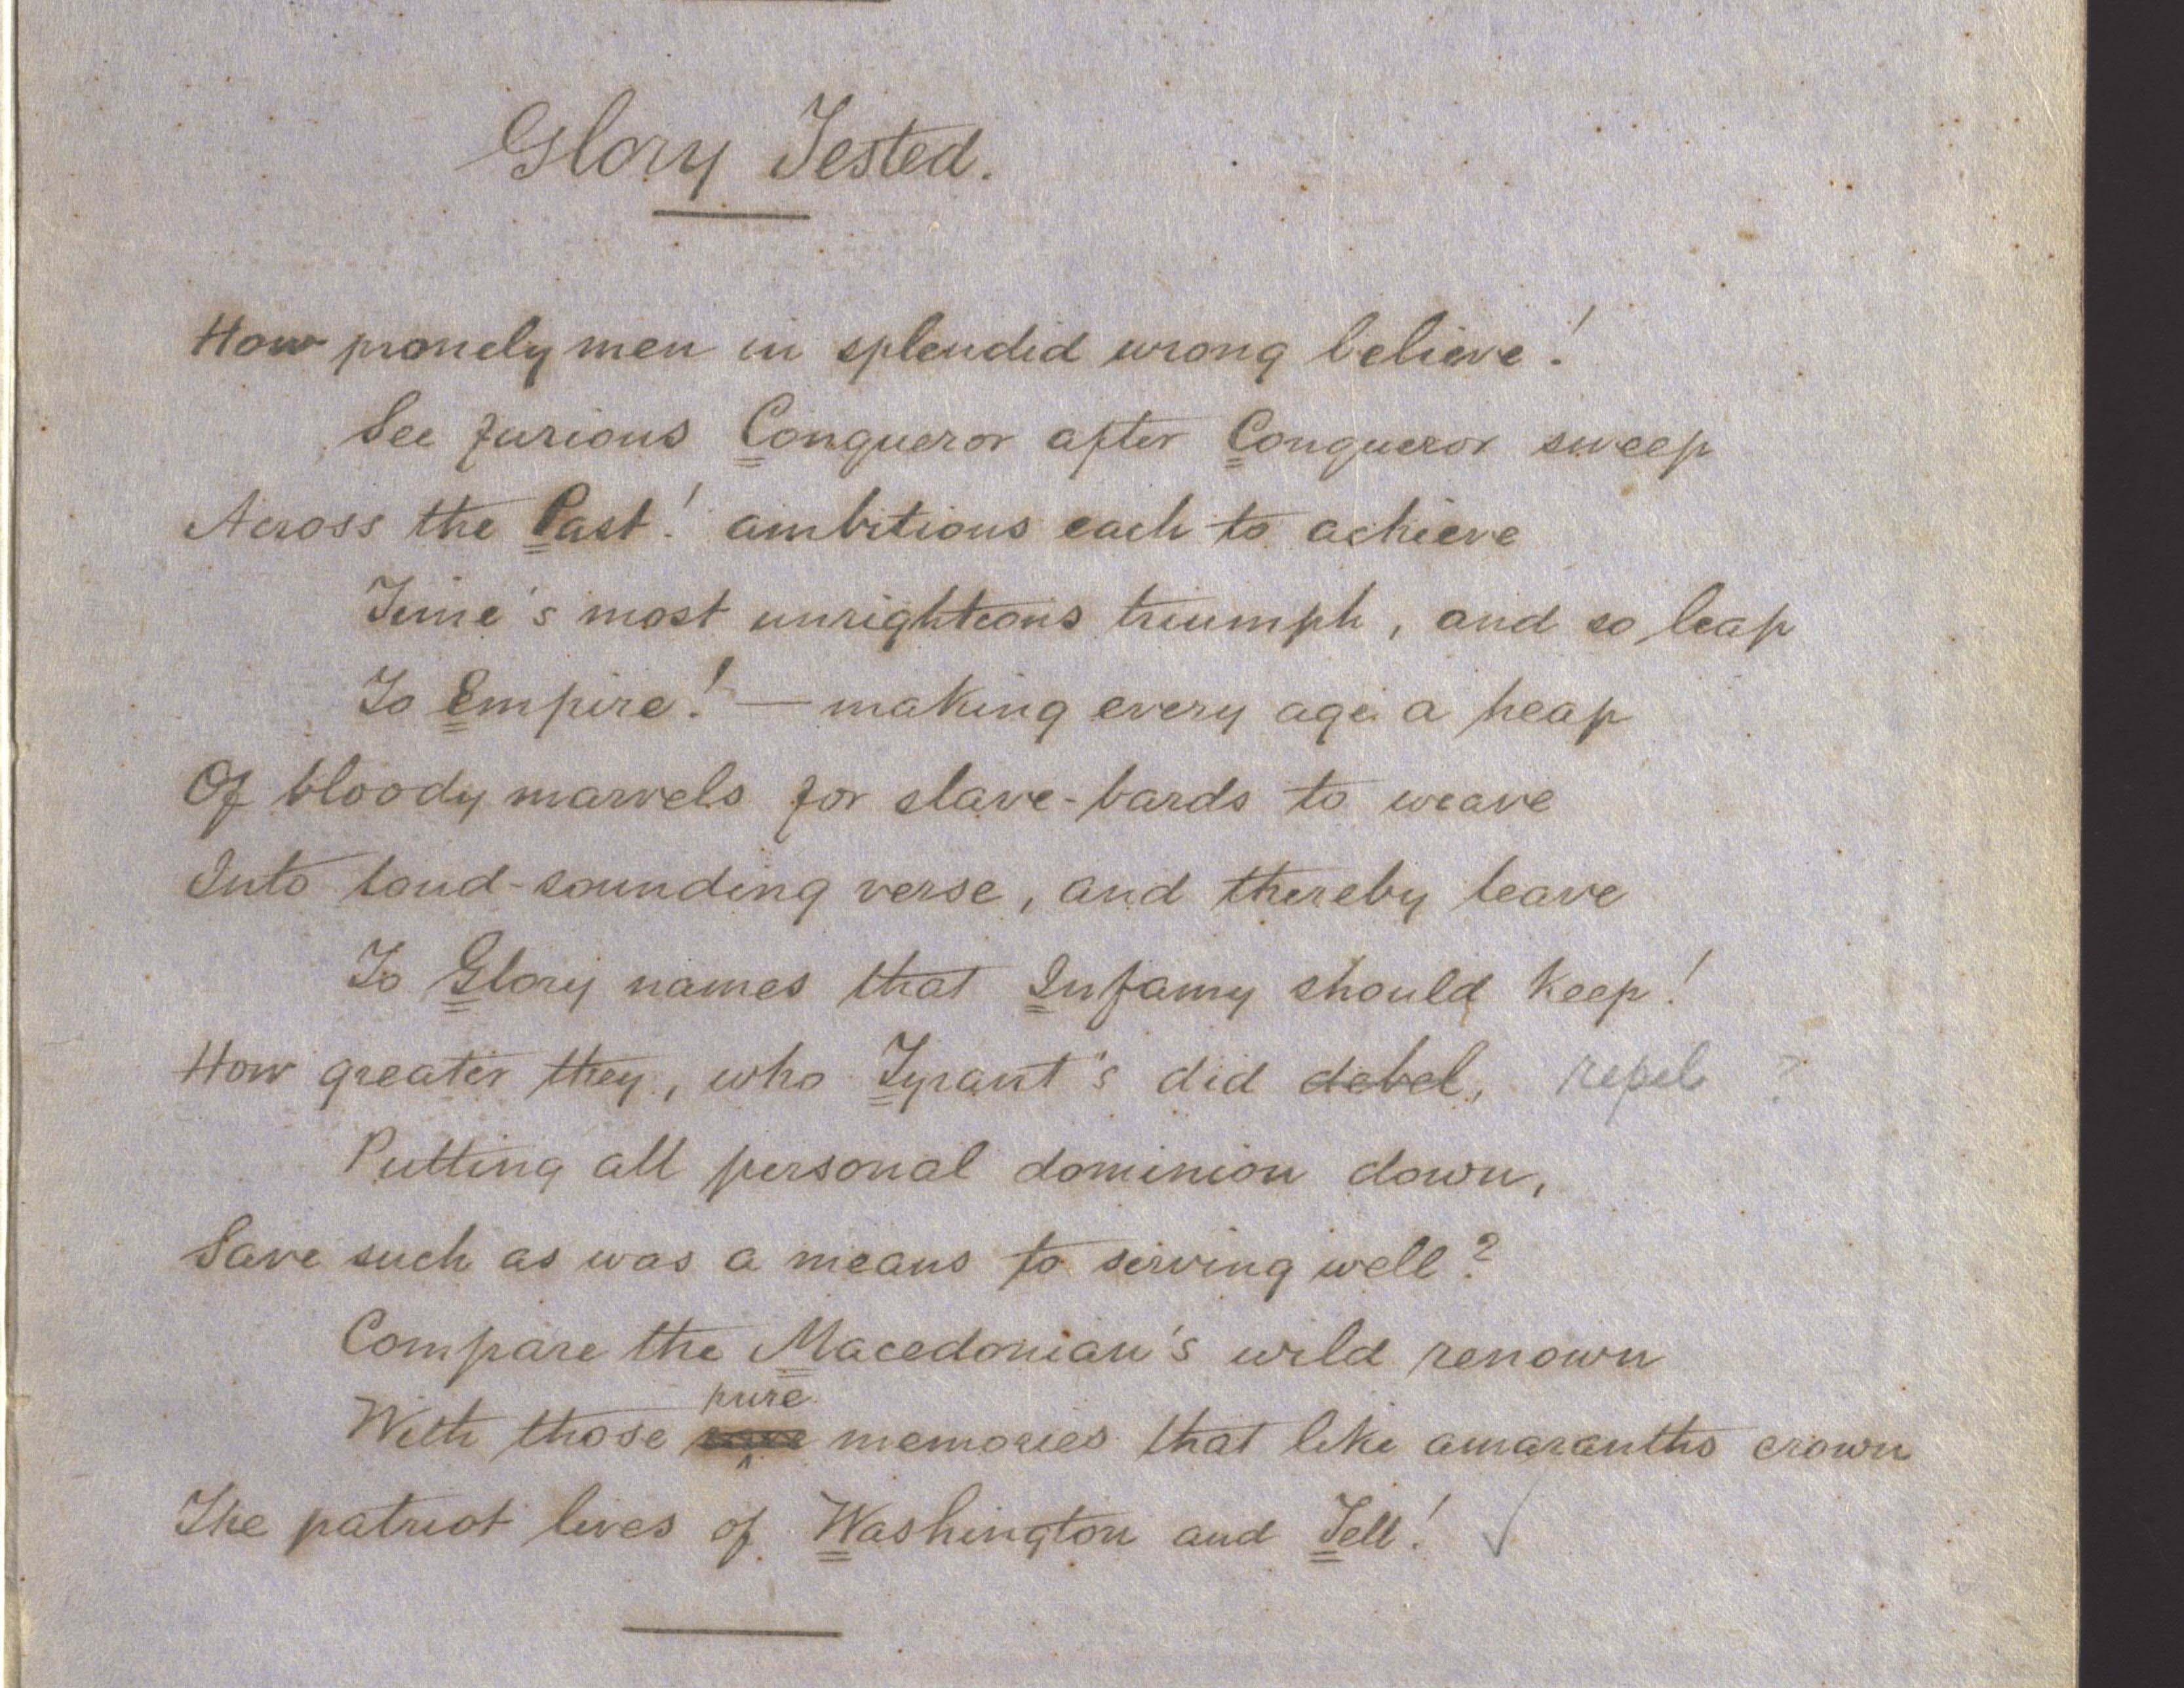 Glory Tested.
How pronely men in splendid wrong believe!
See furious Conqueror after Conqueror sweep
Across the Past! ambitious each to achieve
Time's most unrighteous triumph, and so leap
To Empire! — making every age a heap
Of bloody marvels for slave-bards to weave
Into loud-sounding verse, and thereby leave
To Glory names that Infamy should keep!
How greater they, who Tyrant's did debel, repel ?
Putting all personal dominion down,
Save such as was a means to serving well?
Compare the Macedonian's wild renown
pure
With those memories that like amaranths crown
The patriot lives of Washington and Tell! ✓